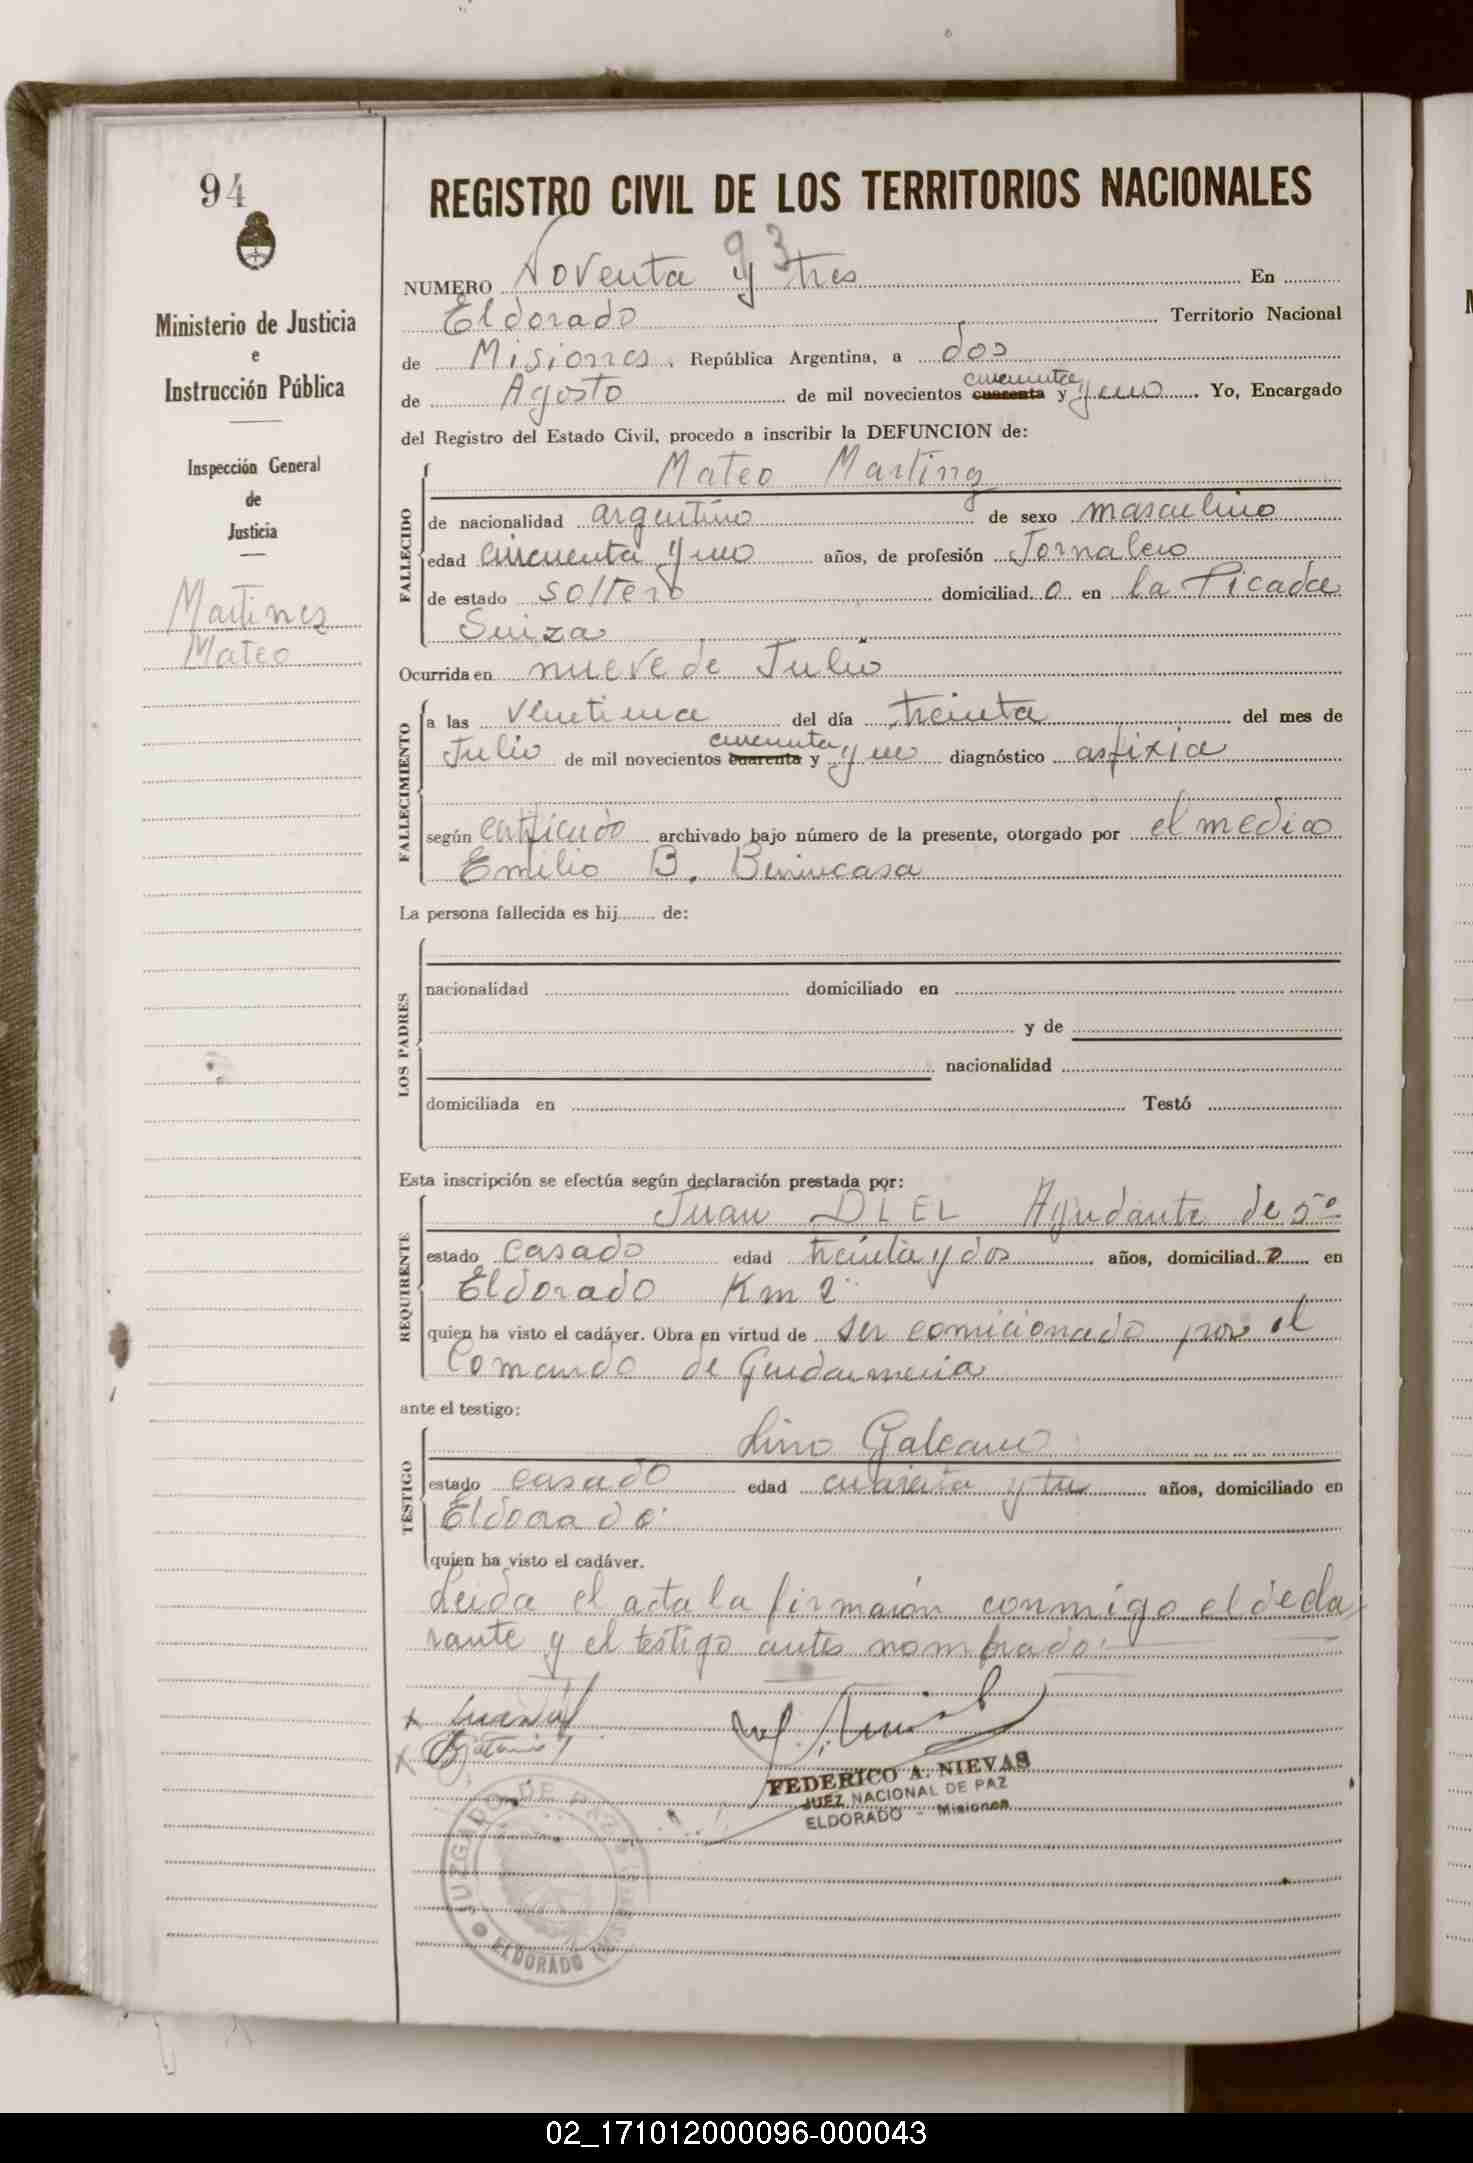 94
REGISTRO CIVIL DE LOS TERRITORIOS NACIONALES
93
NUMERO Noventa y tres En
Eldorado Territorio Nacional
de Misiones, República Argentina, a dos
cincuenta
de Agosto de mil novecientos cuarenta y y uno. Yo, Encargado
del Registro del Estado Civil, procedo a inscribir la DEFUNCION de:
Ministerio de Justicia
e
Instrucción Pública
Inspección General
de
Justicia
Martinez
Mateo
FALLECIDO
Mateo Martinez
de nacionalidad argentino de sexo masculino
edad cincuenta y uno años, de profesión Jornalero
de estado soltero domiciliad o en la Picada
Suiza
Ocurrida en nueve de Julio
FALLECIMIENTO
a las veintiuna del día treinta del mes de
cincuenta
Julio de mil novecientos cuarenta y y uno diagnóstico asfixia
según certificado archivado bajo número de la presente, otorgado por el medico
Emilio B. Benincasa
La persona fallecida es hij de:
LOS PADRES
nacionalidad domiciliado en
y de
nacionalidad
domiciliada en Testó
Esta inscripción se efectúa según declaración prestada por:
REQUIRENTE
Juan DIEL Ayudante de 5º
estado casado edad treinta y dos años, domiciliad o en
Eldorado Km 2
quien ha visto el cadáver. Obra en virtud de ser comicionado por el
Comando de Gendarmeria
ante el testigo:
TESTIGO
Lino Galeano
estado casado edad cuarenta y tres años, domiciliado en
Eldorado
quien ha visto el cadáver.
Leida el acta la firmaron conmigo el decla
rante y el testigo antes nombrado.
FEDERICO A. NIEVAS
JUEZ NACIONAL DE PAZ
ELDORADO - Misiones
JUZGADO DE PAZ
ELDORADO
02_171012000096-000043